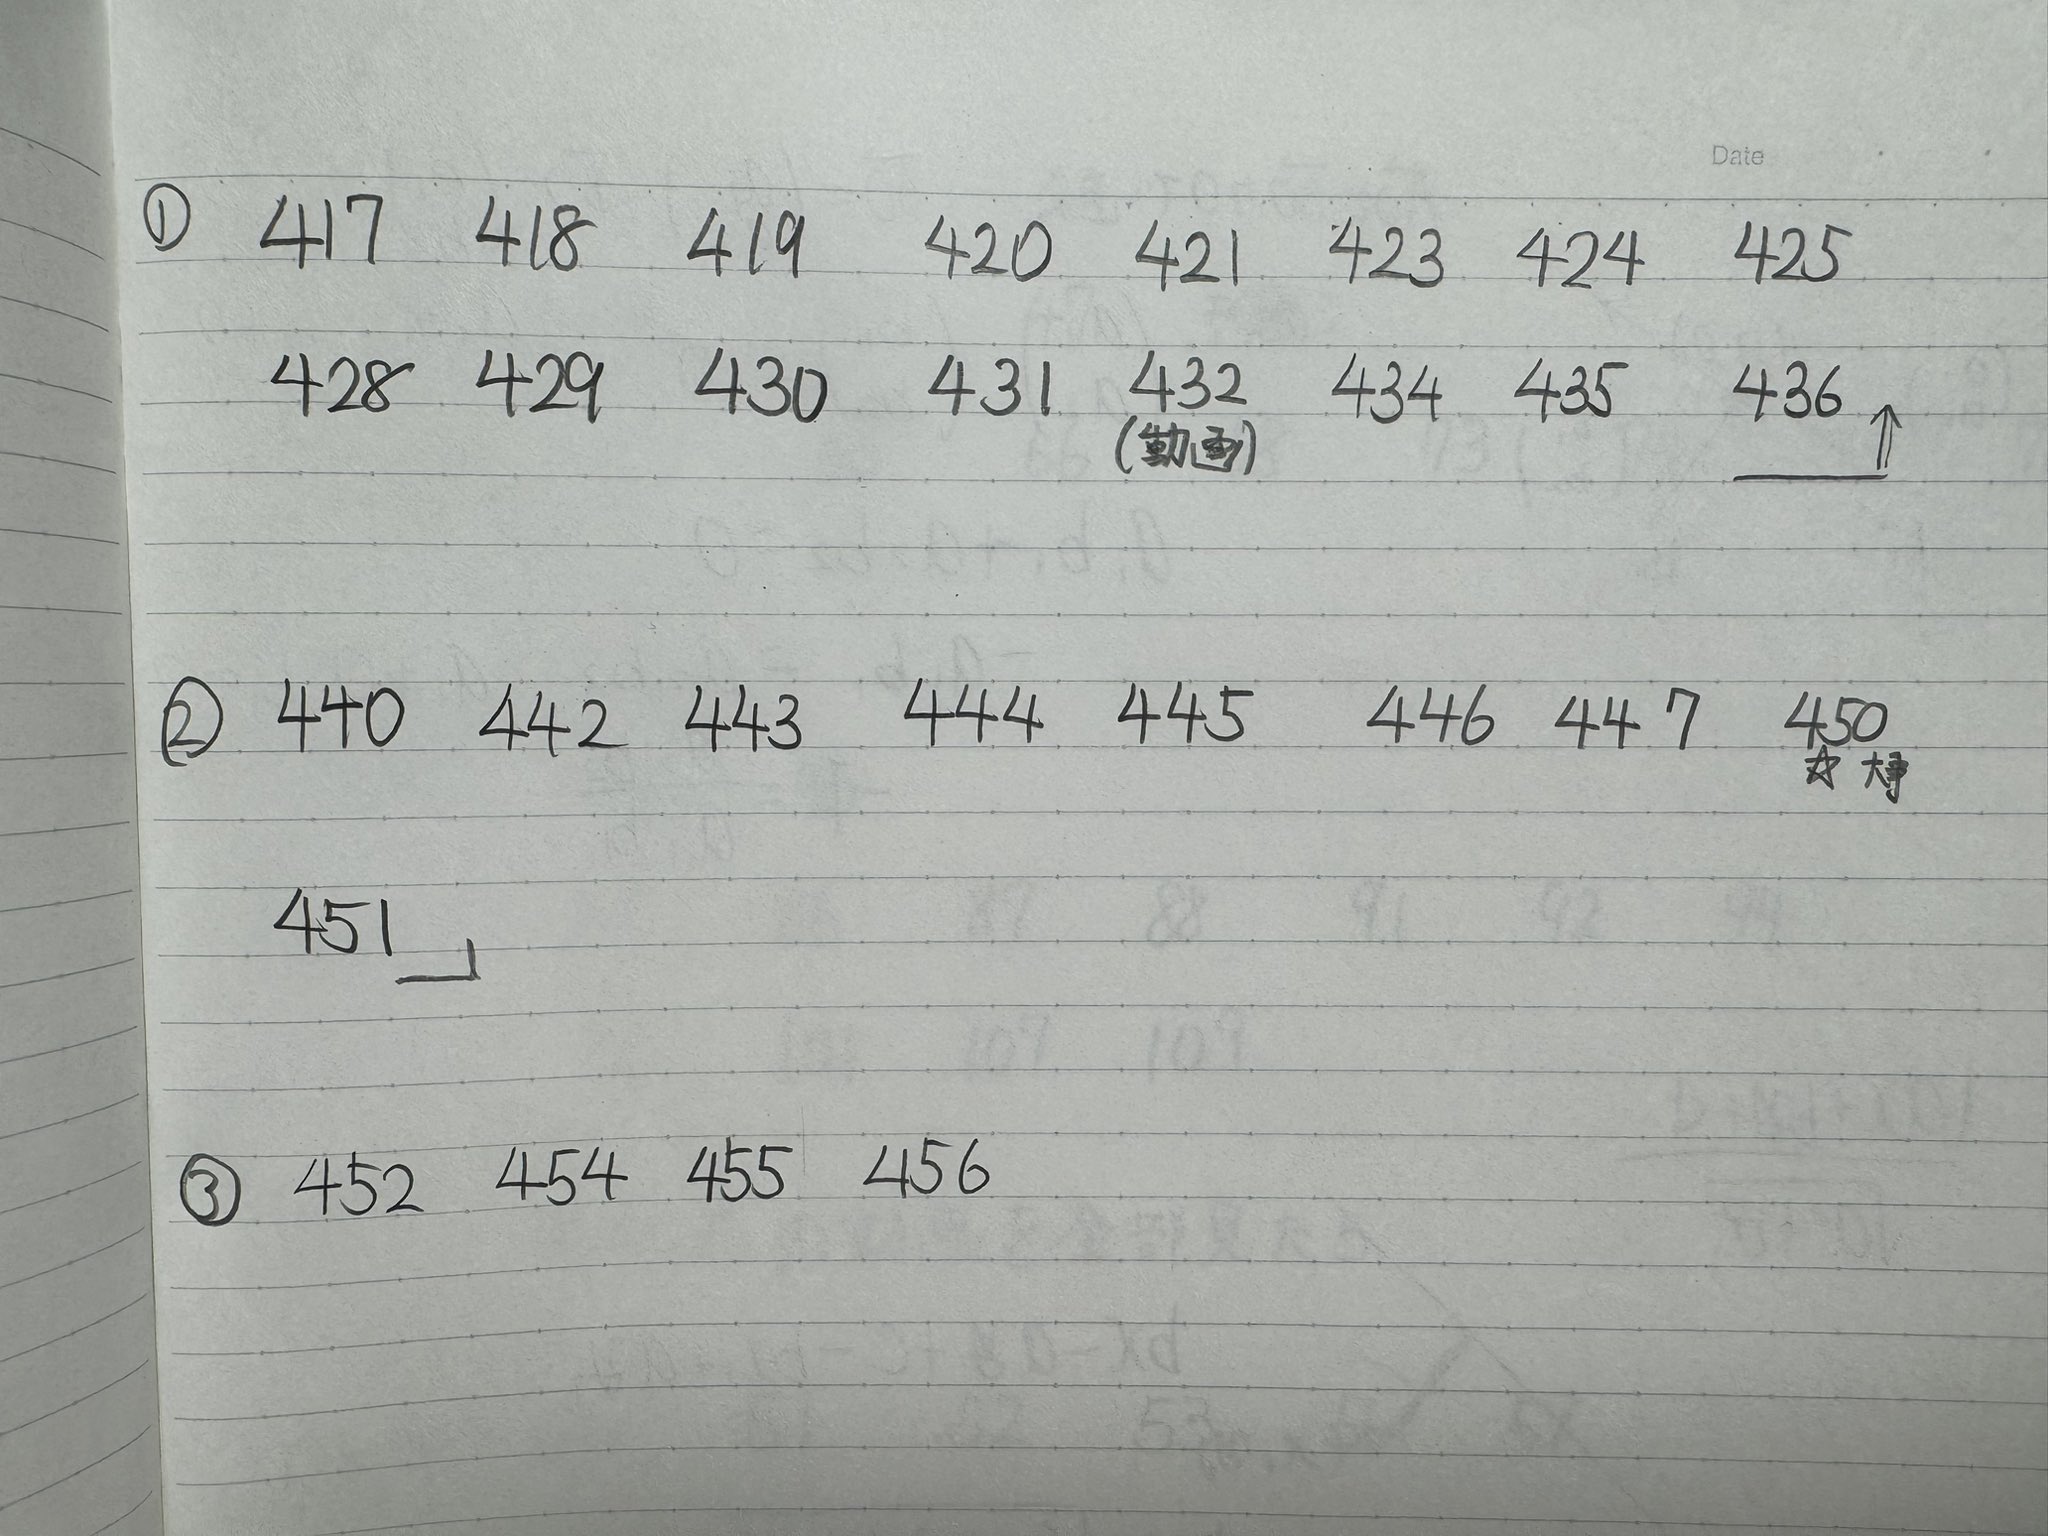 Date
① 417 418 419 420 421 423 424 425
428 429 430 431 432 434 435 436
(動画)
② 440 442 443 444 445 446 447 450
☆ 大事
451
③ 452 454 455 456